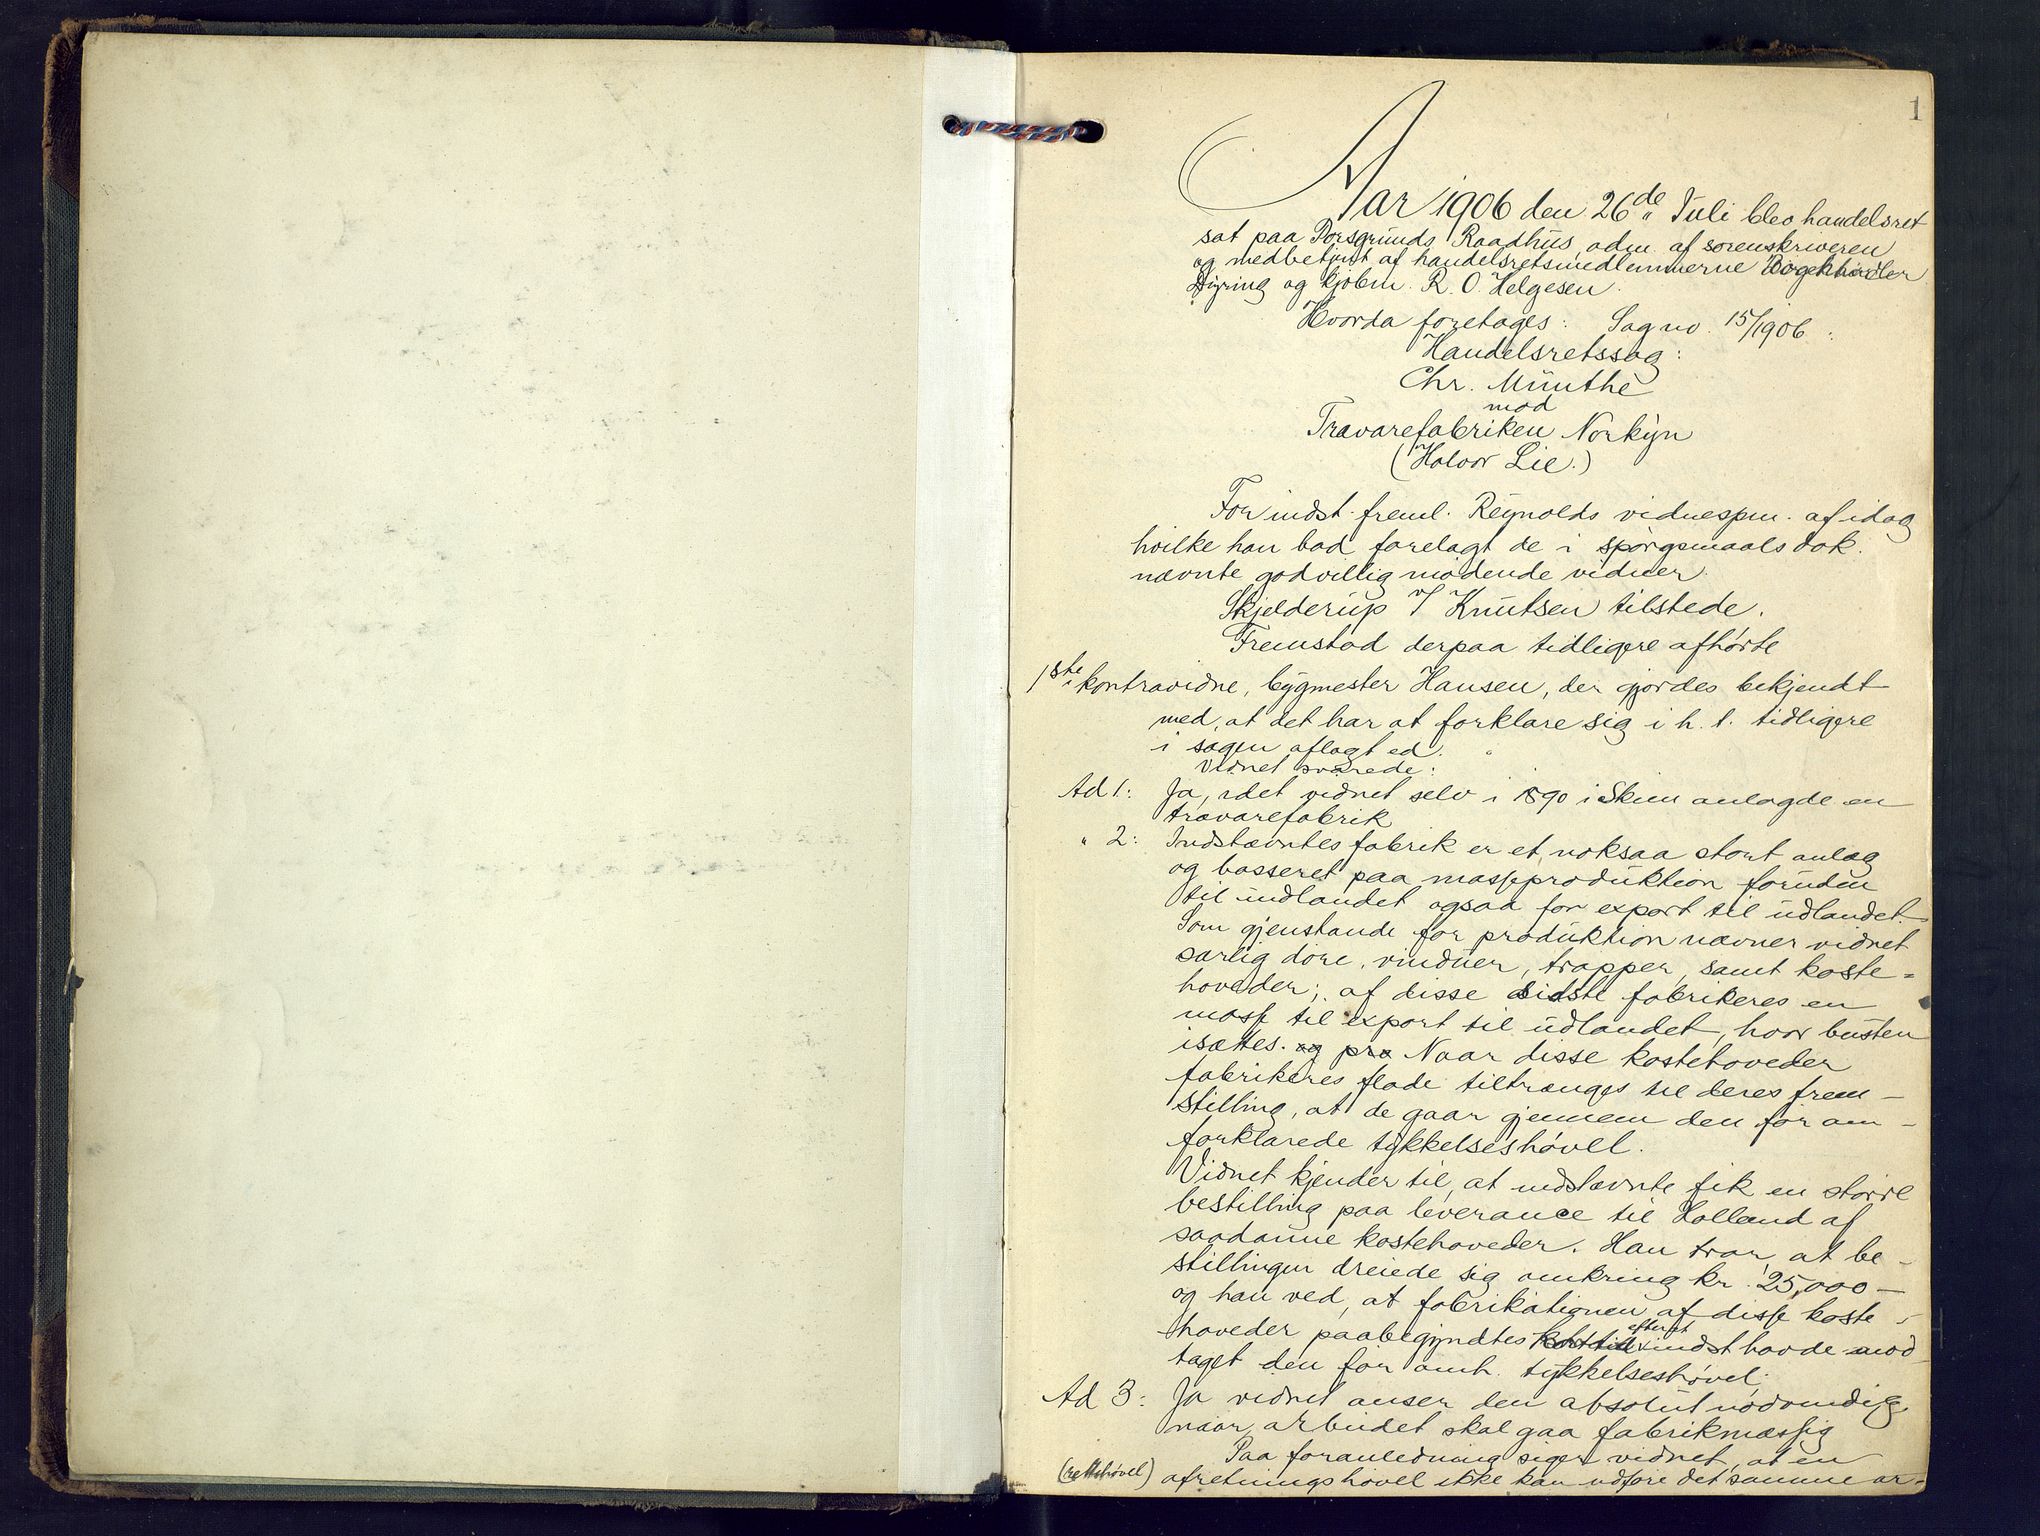 1
Aar 1906 den 26de Juli blev handelsret
sat paa Porsgrunds Raadhus, adm. af sorenskriveren
og medbetjent af handelsretsmedlemmerne
Dyring og kjøbm. R. O. Helgesen.
Hvorda foretages: Sag no. 15/1906:
Handelsretssag:
Chr. Münthe
mod
Trævarefabriken Norkyn
(Halvor Lie.)
For indst. freml. Reynolds vidnespm. af idag
hvilke han bad forelagt de i spørgsmaalsdok.
nævnte godvillig mødende vidner.
Skjelderup v/ Knutsen tilstede.
Fremstod derpaa tidligere afhørte
1ste kontravidne, bygmester Hansen, der gjordes bekjendt
med, at det har at forklare sig i h. t. tidligere
i sagen aflagt ed.
Vidnet svarede:
Ad 1: Ja, idet vidnet selv i 1890 i Skien anlagde en
trævarefabrik
" 2: Indstævntes fabrik er et noksaa stort anlæg
og basseret paa masseproduktion foruden
til indlandet ogsaa for export til udlandet.
Som gjenstande for produktion nævner vidnet
særlig døre, vinduer, trapper, samt koste=
hoveder; af disse sidste fabrikeres en
masse til export til udlandet, hvor busten
isættes. og pra Naar disse kostehoveder
fabrikeres flade tiltrænges til deres frem-
stilling, at de gaar gjennem den før om-
forklarede tykkelseshøvel.
Vidnet kjender til, at indstævnte fik en større
bestilling paa leverance til Holland af
saadanne kostehoveder. Han tror, at be-
stillingen dreiede sig omkring kr. 25,000 —
og han ved, at fabrikationen af disse koste-
hoveder paabegyndtes kort tid efterat indst havde mod-
taget den før omh. tykkelseshøvel.
Ad 3: Ja vidnet anser den absolut nødvendig,
naar arbeidet skal gaa fabrikmæssig
Paa foranledning siger vidnet, at en
(rettehøvel) afretningshøvel ikke kan udføre det samme ar-